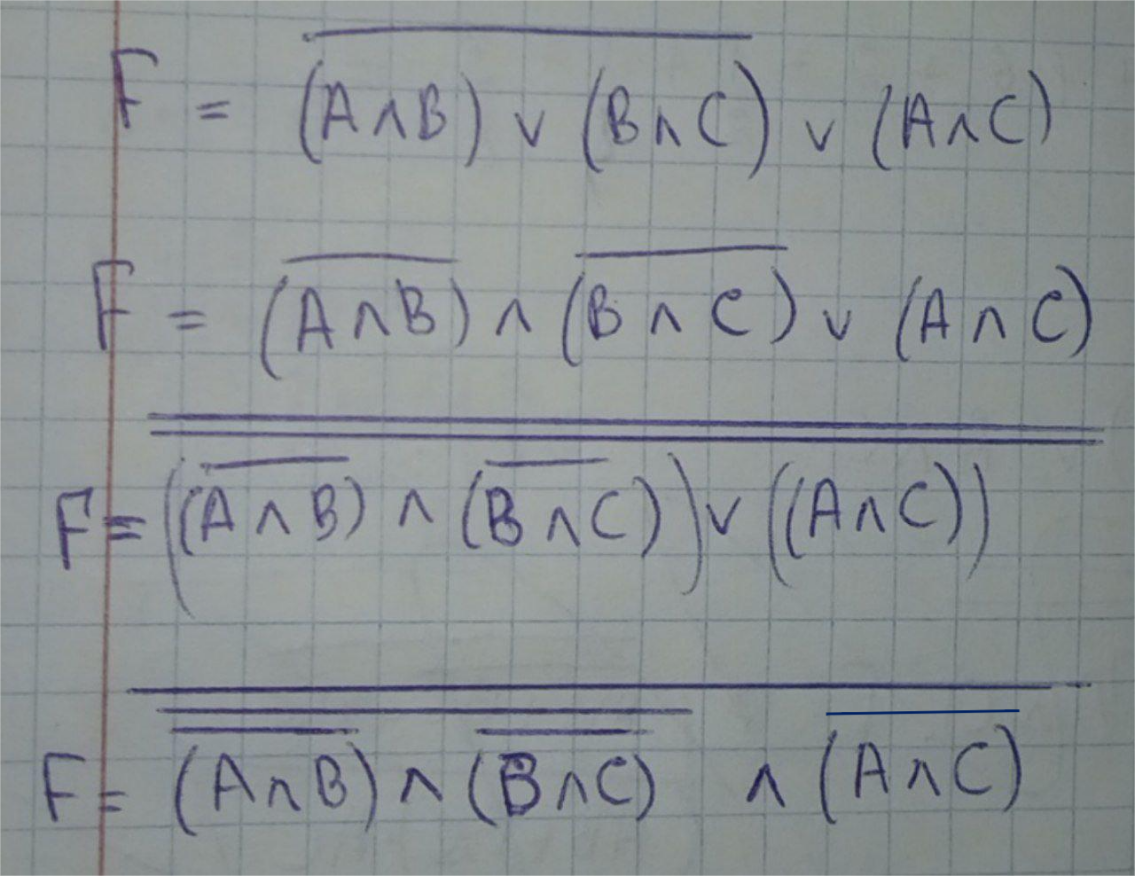 F = \overline{(A∧B) ∨ (B∧C)} ∨ (A∧C)
F = \overline{(A∧B)} ∧ \overline{(B∧C)} ∨ (A∧C)
F = \overline{\overline{((\overline{A∧B}) ∧ (\overline{B∧C})) ∨ ((A∧C))}}
F = \overline{\overline{\overline{(A∧B)} ∧ \overline{(B∧C)}} ∧ \overline{(A∧C)}}